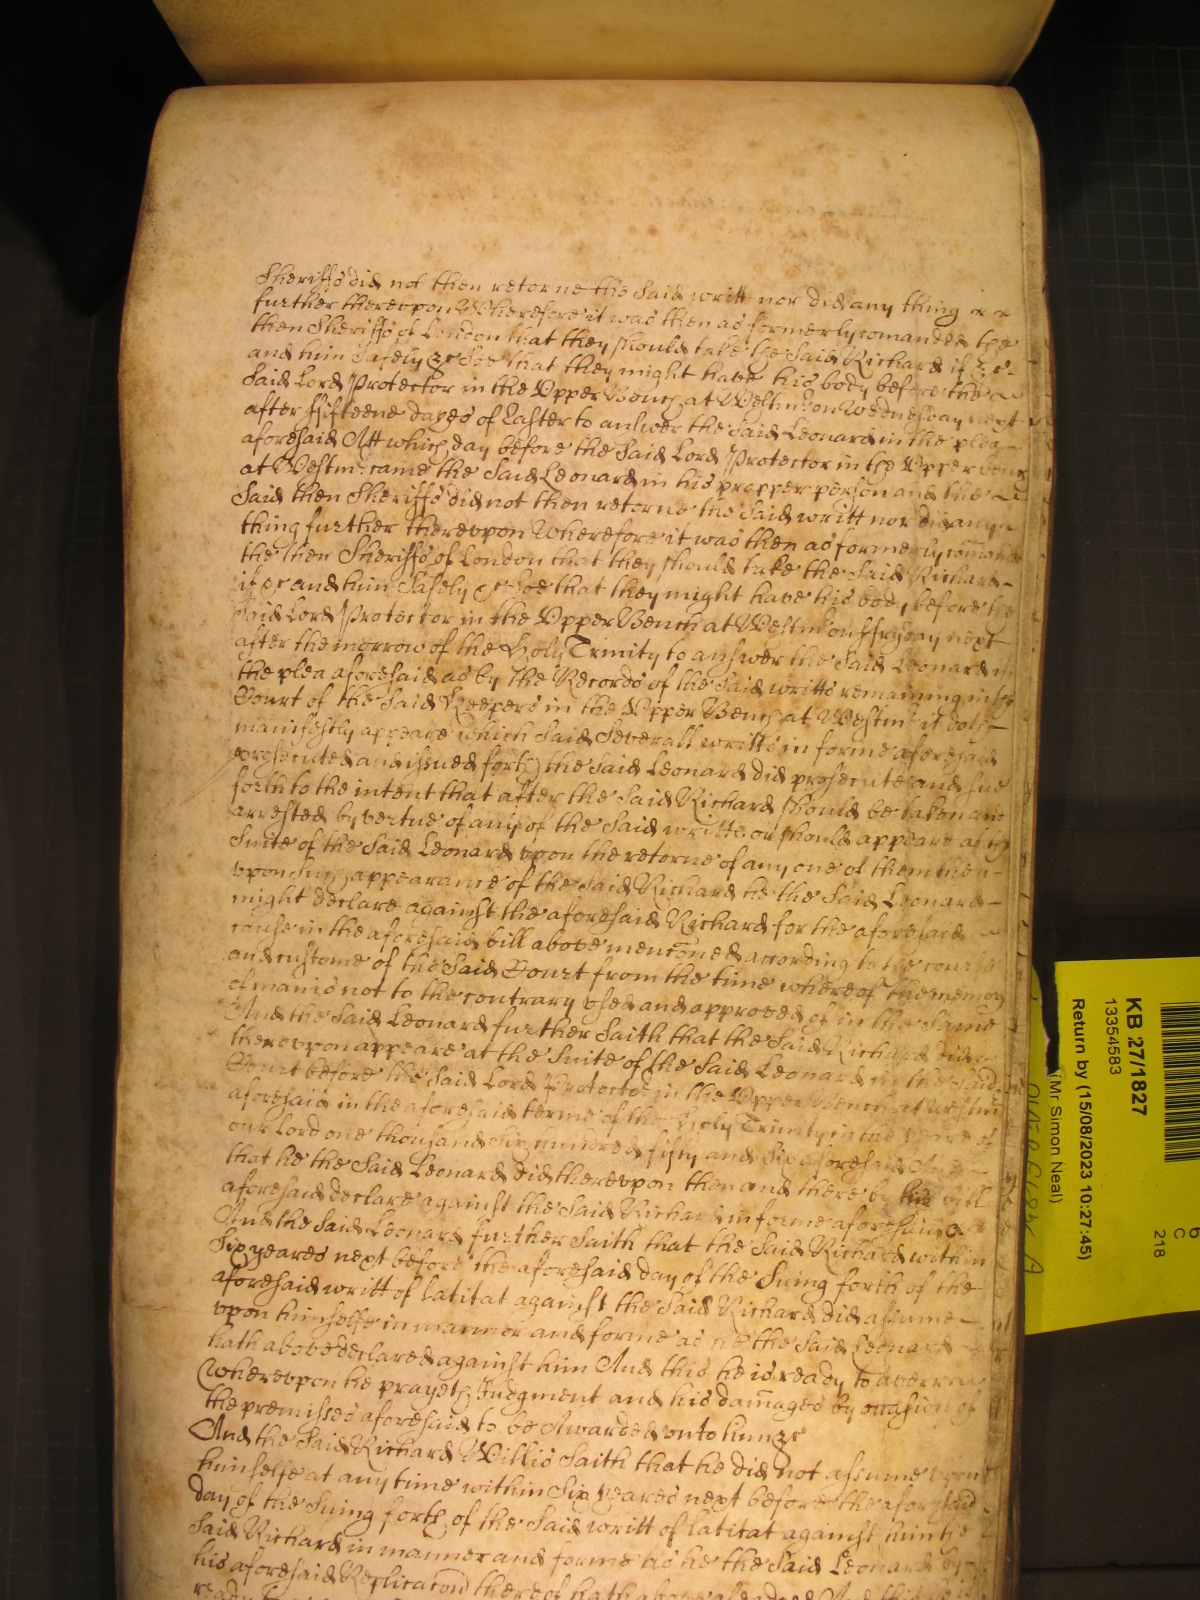 Sheriffs did not then retorne the said writt nor did any thing
further therevpon Wherefore it was then as formerly comanded the
then Sheriffs of London that they should take the said Richard if &c
and him safely &c Soe that they might have his body before the
said Lord Protector in the Vpper Bench at Westmr on Wednesday next
after fifteene dayes of Easter to answer the said Leonard in the plea
aforesaid Att which day before the said Lord Protector in the Vpper Bench
at Westmr came the said Leonard in his propper person and the
said then Sheriffs did not then retorne the said writt nor did any
thing further therevpon Wherefore it was then as formerly comanded
the then Sheriffs of London that they should take the said Richard
if &c and him safely &c Soe that they might have his body before the
said Lord Protector in the Vpper Bench at Westmr on ffryday next
after the morrow of the Holy Trinity to answer the said Leonard in
the plea aforesaid as by the Records of the said writts remaining in the
Court of the said Keepers in the Vpper Bench at Westmr it doth
manifestly appeare which said severall writts in forme aforesaid
prosecuted and issued forth the said Leonard did prosecute and sue
forth to the intent that after the said Richard should be taken and
arrested by vertue of any of the said writts or should appeare at the
suite of the said Leonard vpon the retorne of any one of them then
vpon such appearance of the said Richard he the said Leonard
might declare against the aforesaid Richard for the aforesaid
cause in the aforesaid bill above mencõned according to the course
and custome of the said Court from the time whereof the memory
of man is not to the contrary vsed and approved of in the same
And the said Leonard further saith that the said Richard did
therevpon appeare at the suite of the said Leonard in the said
Court before the said Lord Protector in the Vpper Bench at Westmr
aforesaid in the aforesaid terme of the Holy Trinity in the yeare of
our Lord one thousand six hundred fifty and six aforesaid
that he the said Leonard did therevpon then and there by his bill
aforesaid declare against the said Richard in forme aforesaid
And the said Leonard further saith that the said Richard within
six yeares next before the aforesaid day of the suing forth of the
aforesaid writt of latitat against the said Richard did assume
vpon himselfe in manner and forme as he the said Leonard
hath above declared against him And this he is ready to averr
Wherevpon he prayeth Judgment and his damages by occasion of
the premisses aforesaid to be Awarded vnto him &c
And the said Richard Willis saith that he did not assume vpon
himselfe at any time within six yeares next before the aforesaid
day of the suing forth of the said writt of latitat against him the
said Richard in manner and forme as he the said Leonard by
his aforesaid Replicacõn thereof hath above alleadged And this he is
KB 27/1827
13354583
Return by (15/08/2023 10:27:45)
(Mr Simon Neal)
6
C
218